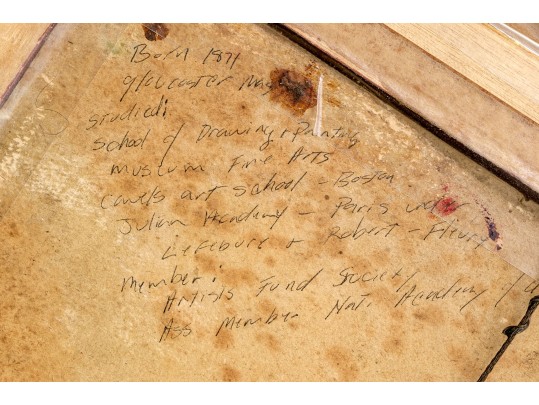 Born 1871
Gloucester Mass
Studied:
School of Drawing + Painting
Museum Fine Arts
Cowles art School - Boston
Julian Academy - Paris under
Lefebure + Robert - Fleury
Member:
Artists Fund Society
Ass Member Nat. Academy of